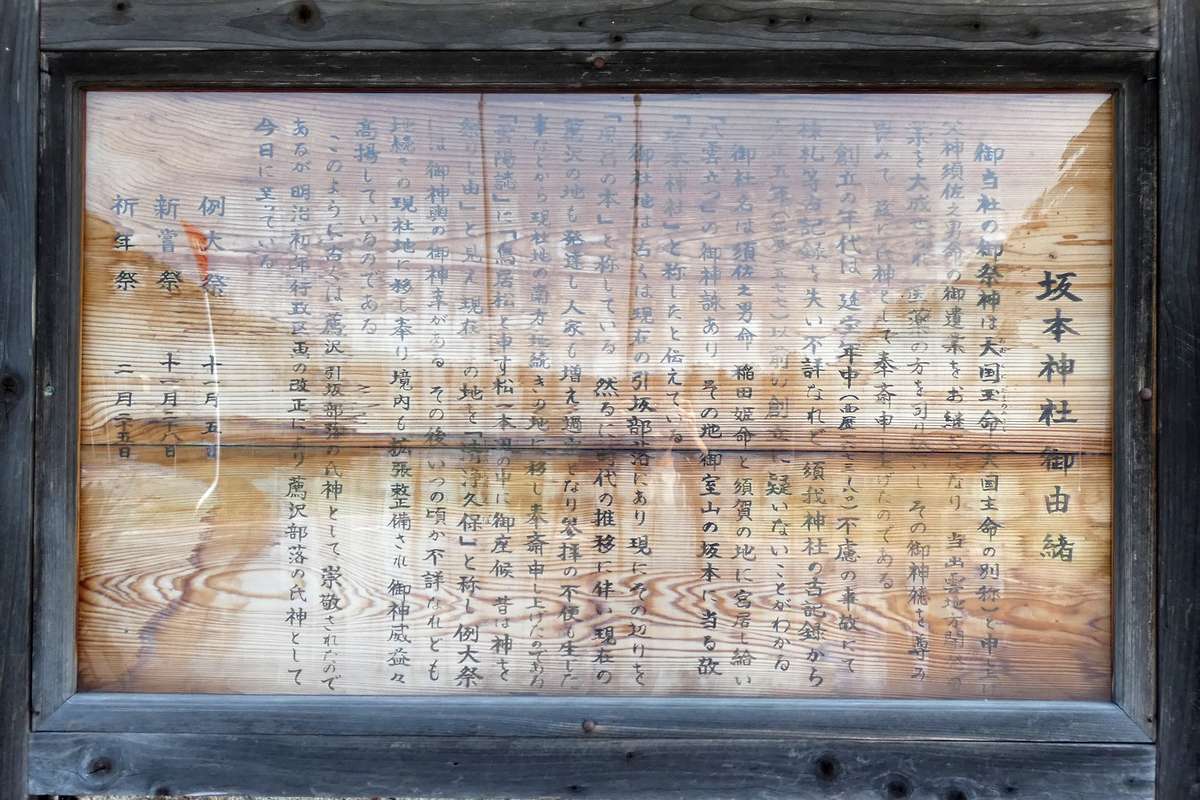 坂本神社御由緒
御当社の御祭神は大国玉命(大国主命の別称)と申上げ
父神須佐之男命の御遺業をお継ぎになり 当出雲地方開
業を大成せられ 医薬の方を その御神徳を尊み
て 茲に神として奉斎申上げたのである
創立の年代は 延宝年中(西暦 )不慮の事故にて
棟札等古記録を失い不詳なれど 須我神社の古記録から
五年( )以前の創立に疑いないことがわかる
御社名は須佐之男命 稲田姫命と須賀の地に宮居し給い
「八雲立つ」の御神詠あり その地 御室山の坂本に当る故
「坂本神社」と称したと伝えている
御社地は古くは現在の引坂部落にあり 現にその辺りを
「 の本」と称している 然るに時代の推移に伴い現在の
薦沢の地も発達し人家も増え 過 となり参拝の不便も生じた
事などから現社地の南方地続きの地に移し奉斎申し上げたのである
「雲陽誌」に「鳥居松と申す松一本 の中に御座候 昔は神を
祭りし由」と見え 現在この地を「清浄久保」と称し 例大祭
には御神輿の御神幸がある その後いつの頃か不詳なれども
地続きの現社地に移し奉り 境内も拡張整備され 御神威益々
高揚しているのである
このように古くは薦沢 引坂部落の氏神として 崇敬されたので
あるが明治初年行政区画の改正により 薦沢部落の氏神として
今日に至っている
例大祭 十一月 五日
新嘗祭 十一月二六日
祈年祭 二月二五日